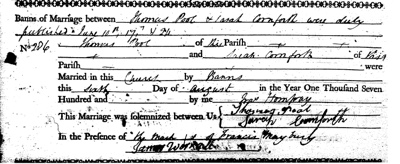 Banns of Marriage between Thomas Pool & Sarah Cornforth were duly
published June 10th, 17th & 24
No 206. Thomas Pool of this Parish
and Sarah Cornforth of this
Parish were
Married in this Church by Banns
this sixth Day of August in the Year One Thousand Seven
Hundred and by me
This Marriage was solemnized between Us Thomas Pool
Sarah Cornforth
In the Presence of The Mark of Francis
James